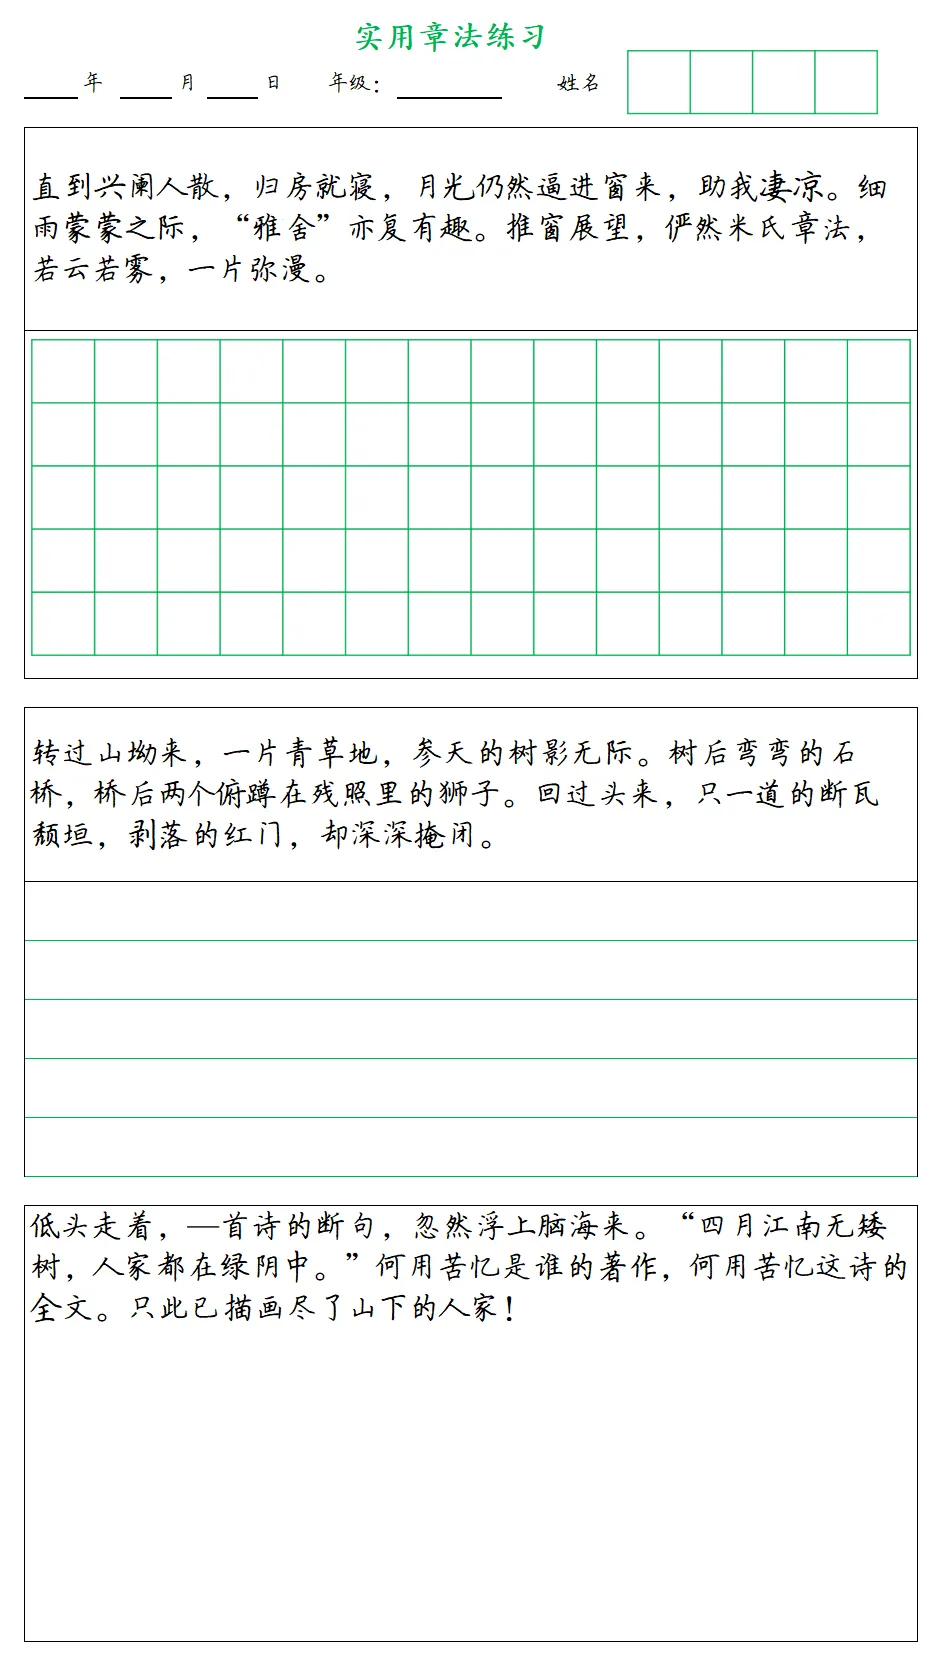 实用章法练习
年 月 日 年级： 姓名
直到兴阑人散，归房就寝，月光仍然逼进窗来，助我凄凉。细
雨蒙蒙之际，“雅舍”亦复有趣。推窗展望，俨然米氏章法，
若云若雾，一片弥漫。
转过山坳来，一片青草地，参天的树影无际。树后弯弯的石
桥，桥后两个俯蹲在残照里的狮子。回过头来，只一道的断瓦
颓垣，剥落的红门，却深深掩闭。
低头走着，—首诗的断句，忽然浮上脑海来。“四月江南无矮
树，人家都在绿阴中。”何用苦忆是谁的著作，何用苦忆这诗的
全文。只此已描画尽了山下的人家！